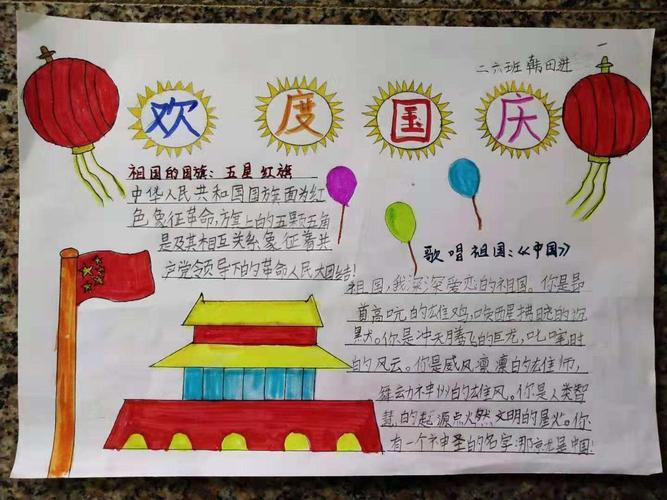 二六班 韩田进
欢 度 国 庆
祖国的国旗：五星红旗
中华人民共和国国旗面为红
色，象征革命，旗上的五颗五角
星及其相互关系象征着共
产党领导下的革命人民大团结！
歌唱祖国：《中国》
祖国，我深深爱恋的祖国。你是昂
首高吭的雄鸡，唤醒拂晓的沉
默。你是冲天腾飞的巨龙，叱咤时
的风云。你是威风凛凛的雄师，
舞动神州的雄风。你是人类智
慧的起源点火然文明的星火。你
有一个神圣的名字，那就是中国！